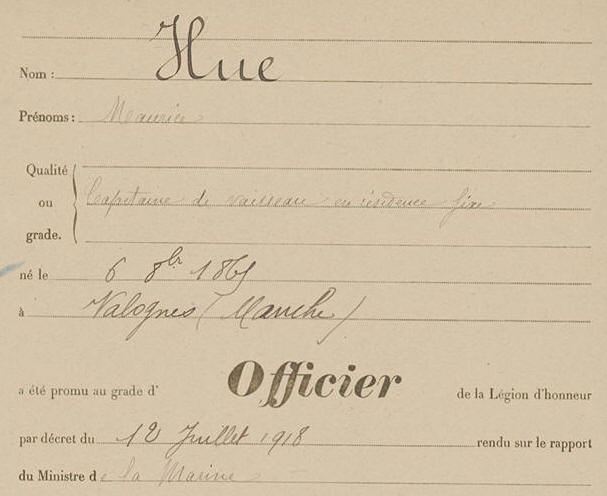 Nom : Hue
Prénoms : Maurice
Qualité
ou
grade.
Capitaine de vaisseau en résidence fixe
né le 6 8br 1865
à Valognes (Manche)
a été promu au grade d' Officier de la Légion d'honneur
par décret du 12 Juillet 1918 rendu sur le rapport
du Ministre de la Marine